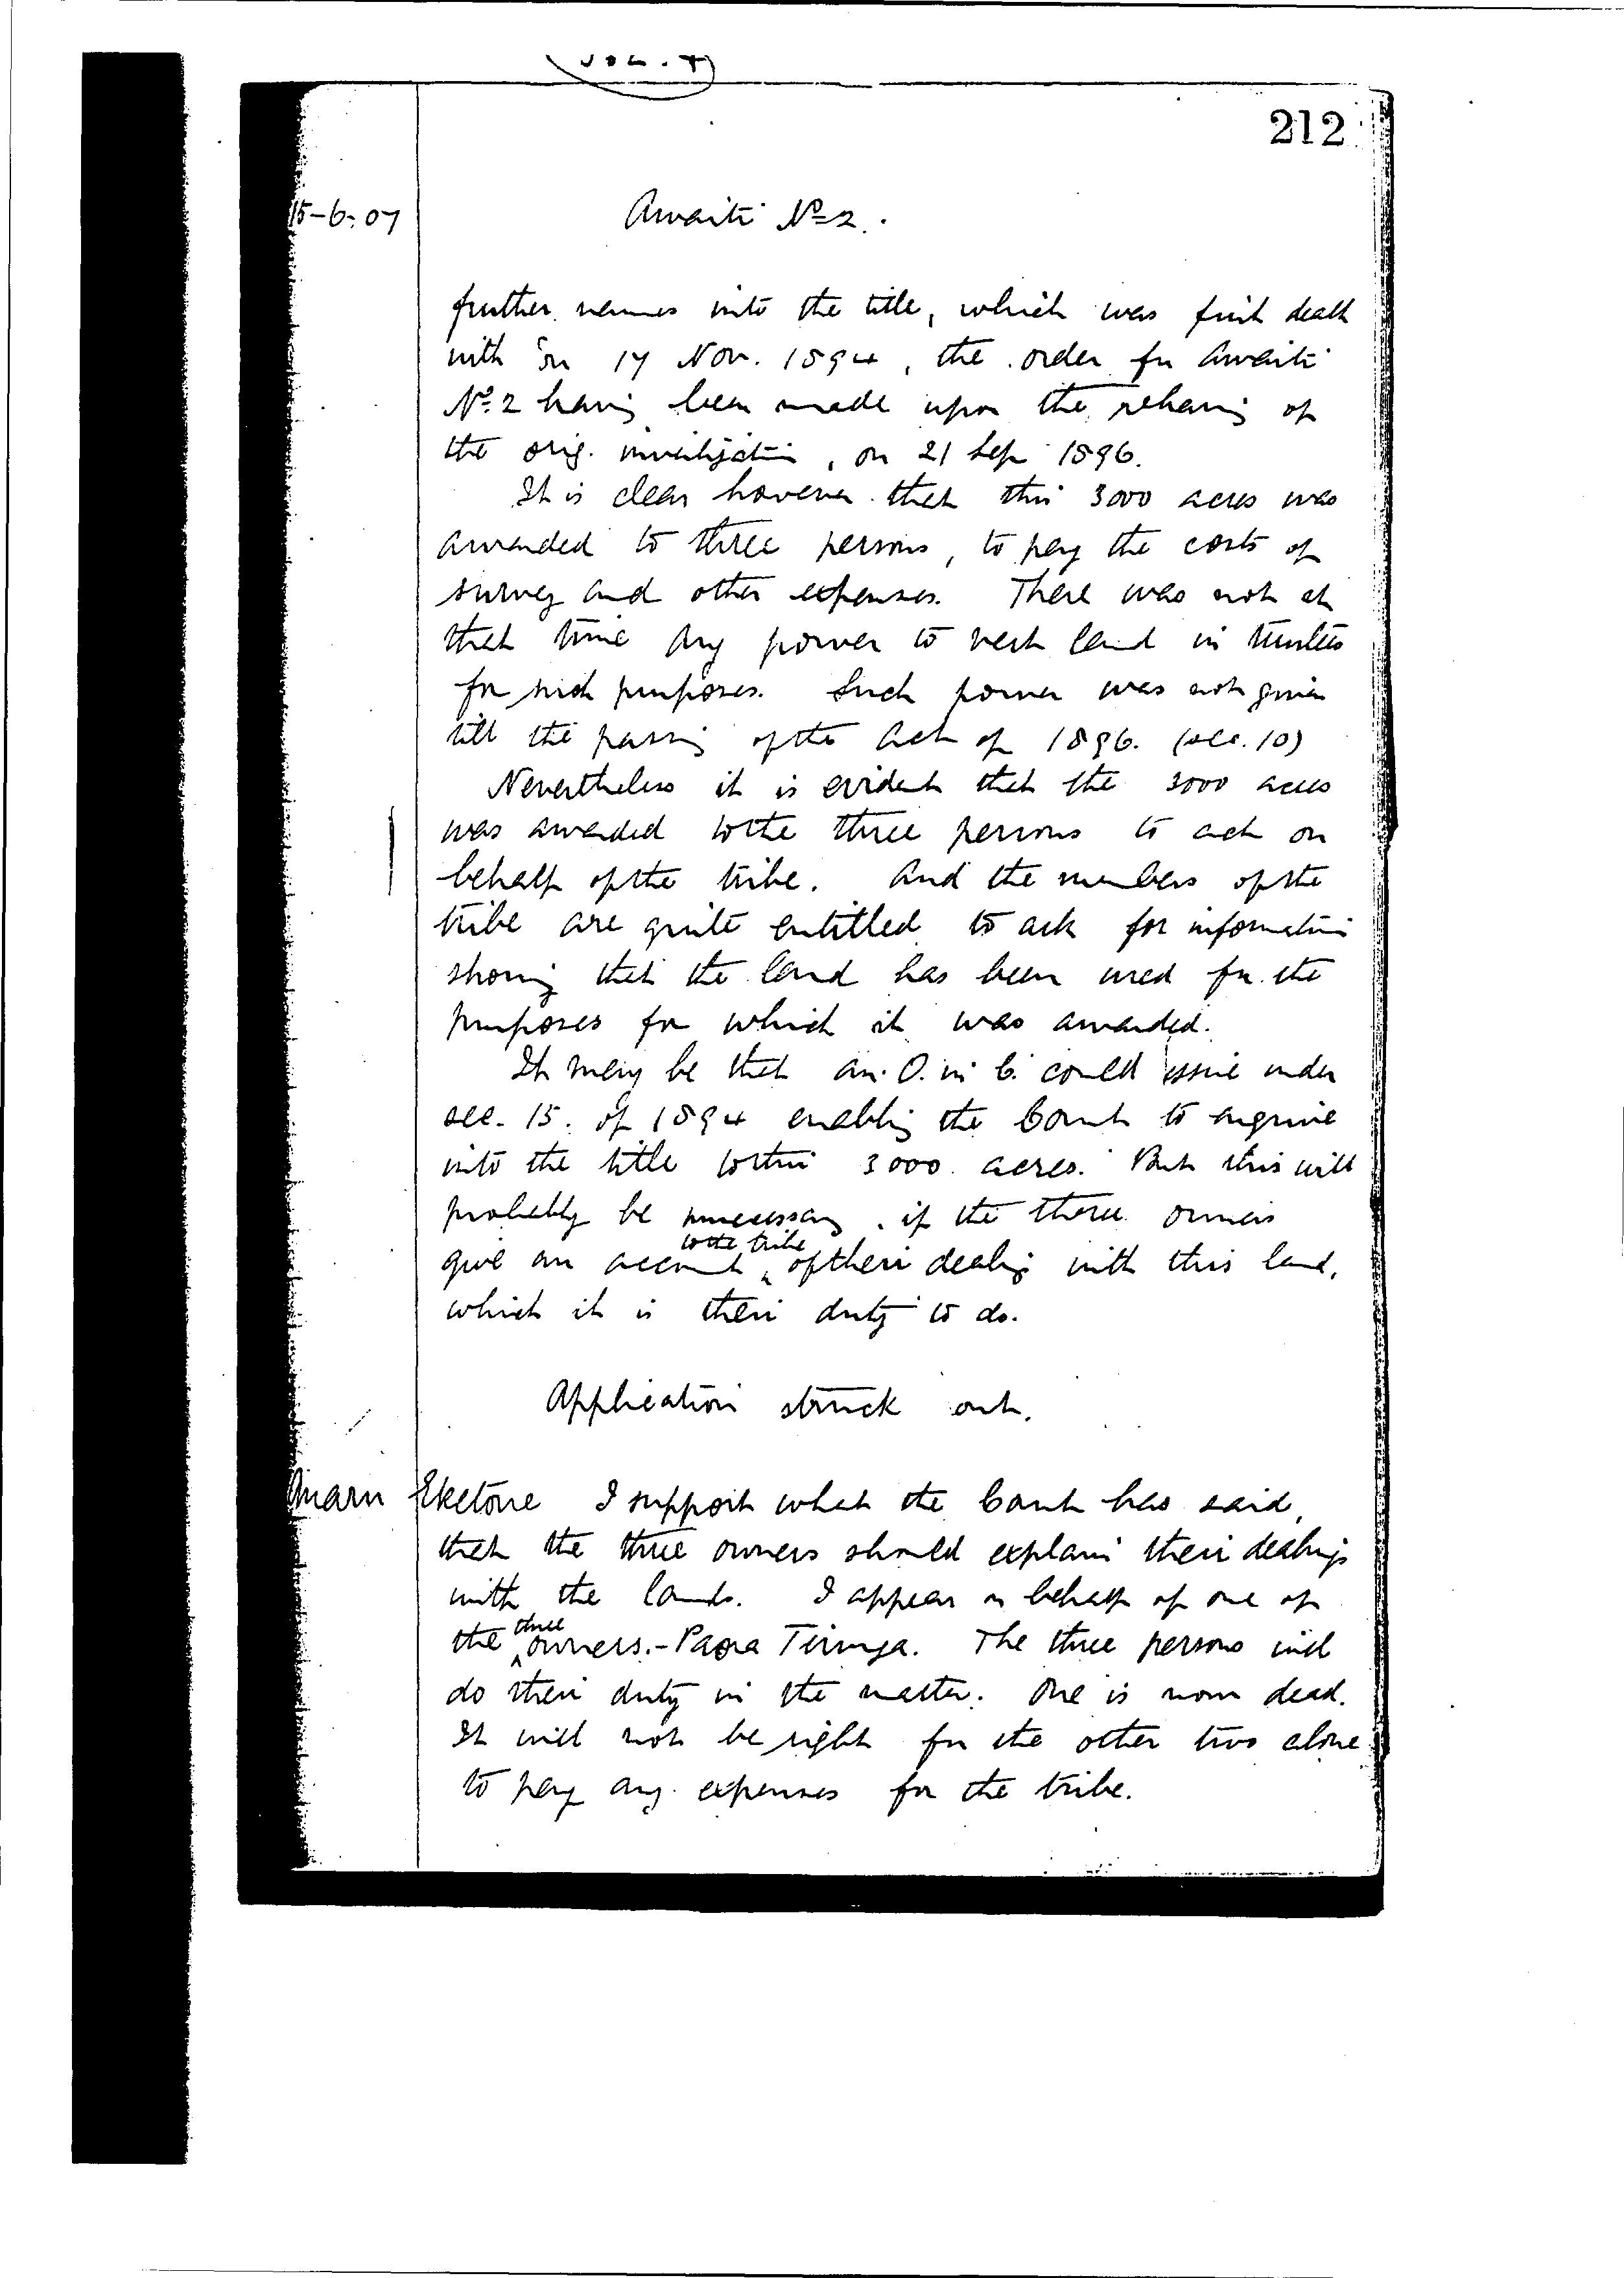 VOL. 7
212
15-6-07
Awaiti No 2.
further names into the title, which was first dealt
with on 17 Nov. 1894, the order for Awaiti
No. 2 having been made upon the rehearing of
the orig. investigation, on 21 Sep 1896.
It is clear however that this 3000 acres was
awarded to three persons, to pay the costs of
survey and other expenses. There was not at
that time any power to vest land in trustees
for such purposes. Such power was not given
till the passing of the Act of 1896. (sec. 10)
Nevertheless it is evident that the 3000 acres
was awarded to the three persons to act on
behalf of the tribe. And the members of the
tribe are quite entitled to ask for information
showing that the land has been used for the
purposes for which it was awarded.
It may be that an O. in C. could issue under
sec. 15. of 1894 enabling the Court to enquire
into the title to this 3000 acres. But this will
probably be unnecessary, if the three owners
give an account to the tribe of their dealings with this land,
which it is their duty to do.
Application struck out.
Eketone I support what the Court has said,
that the three owners should explain their dealings
with the lands. I appear on behalf of one of
the three owners.- Paora Tiringa. The three persons will
do their duty in the matter. One is now dead.
It will not be right for the other two alone
to pay any expenses for the tribe.